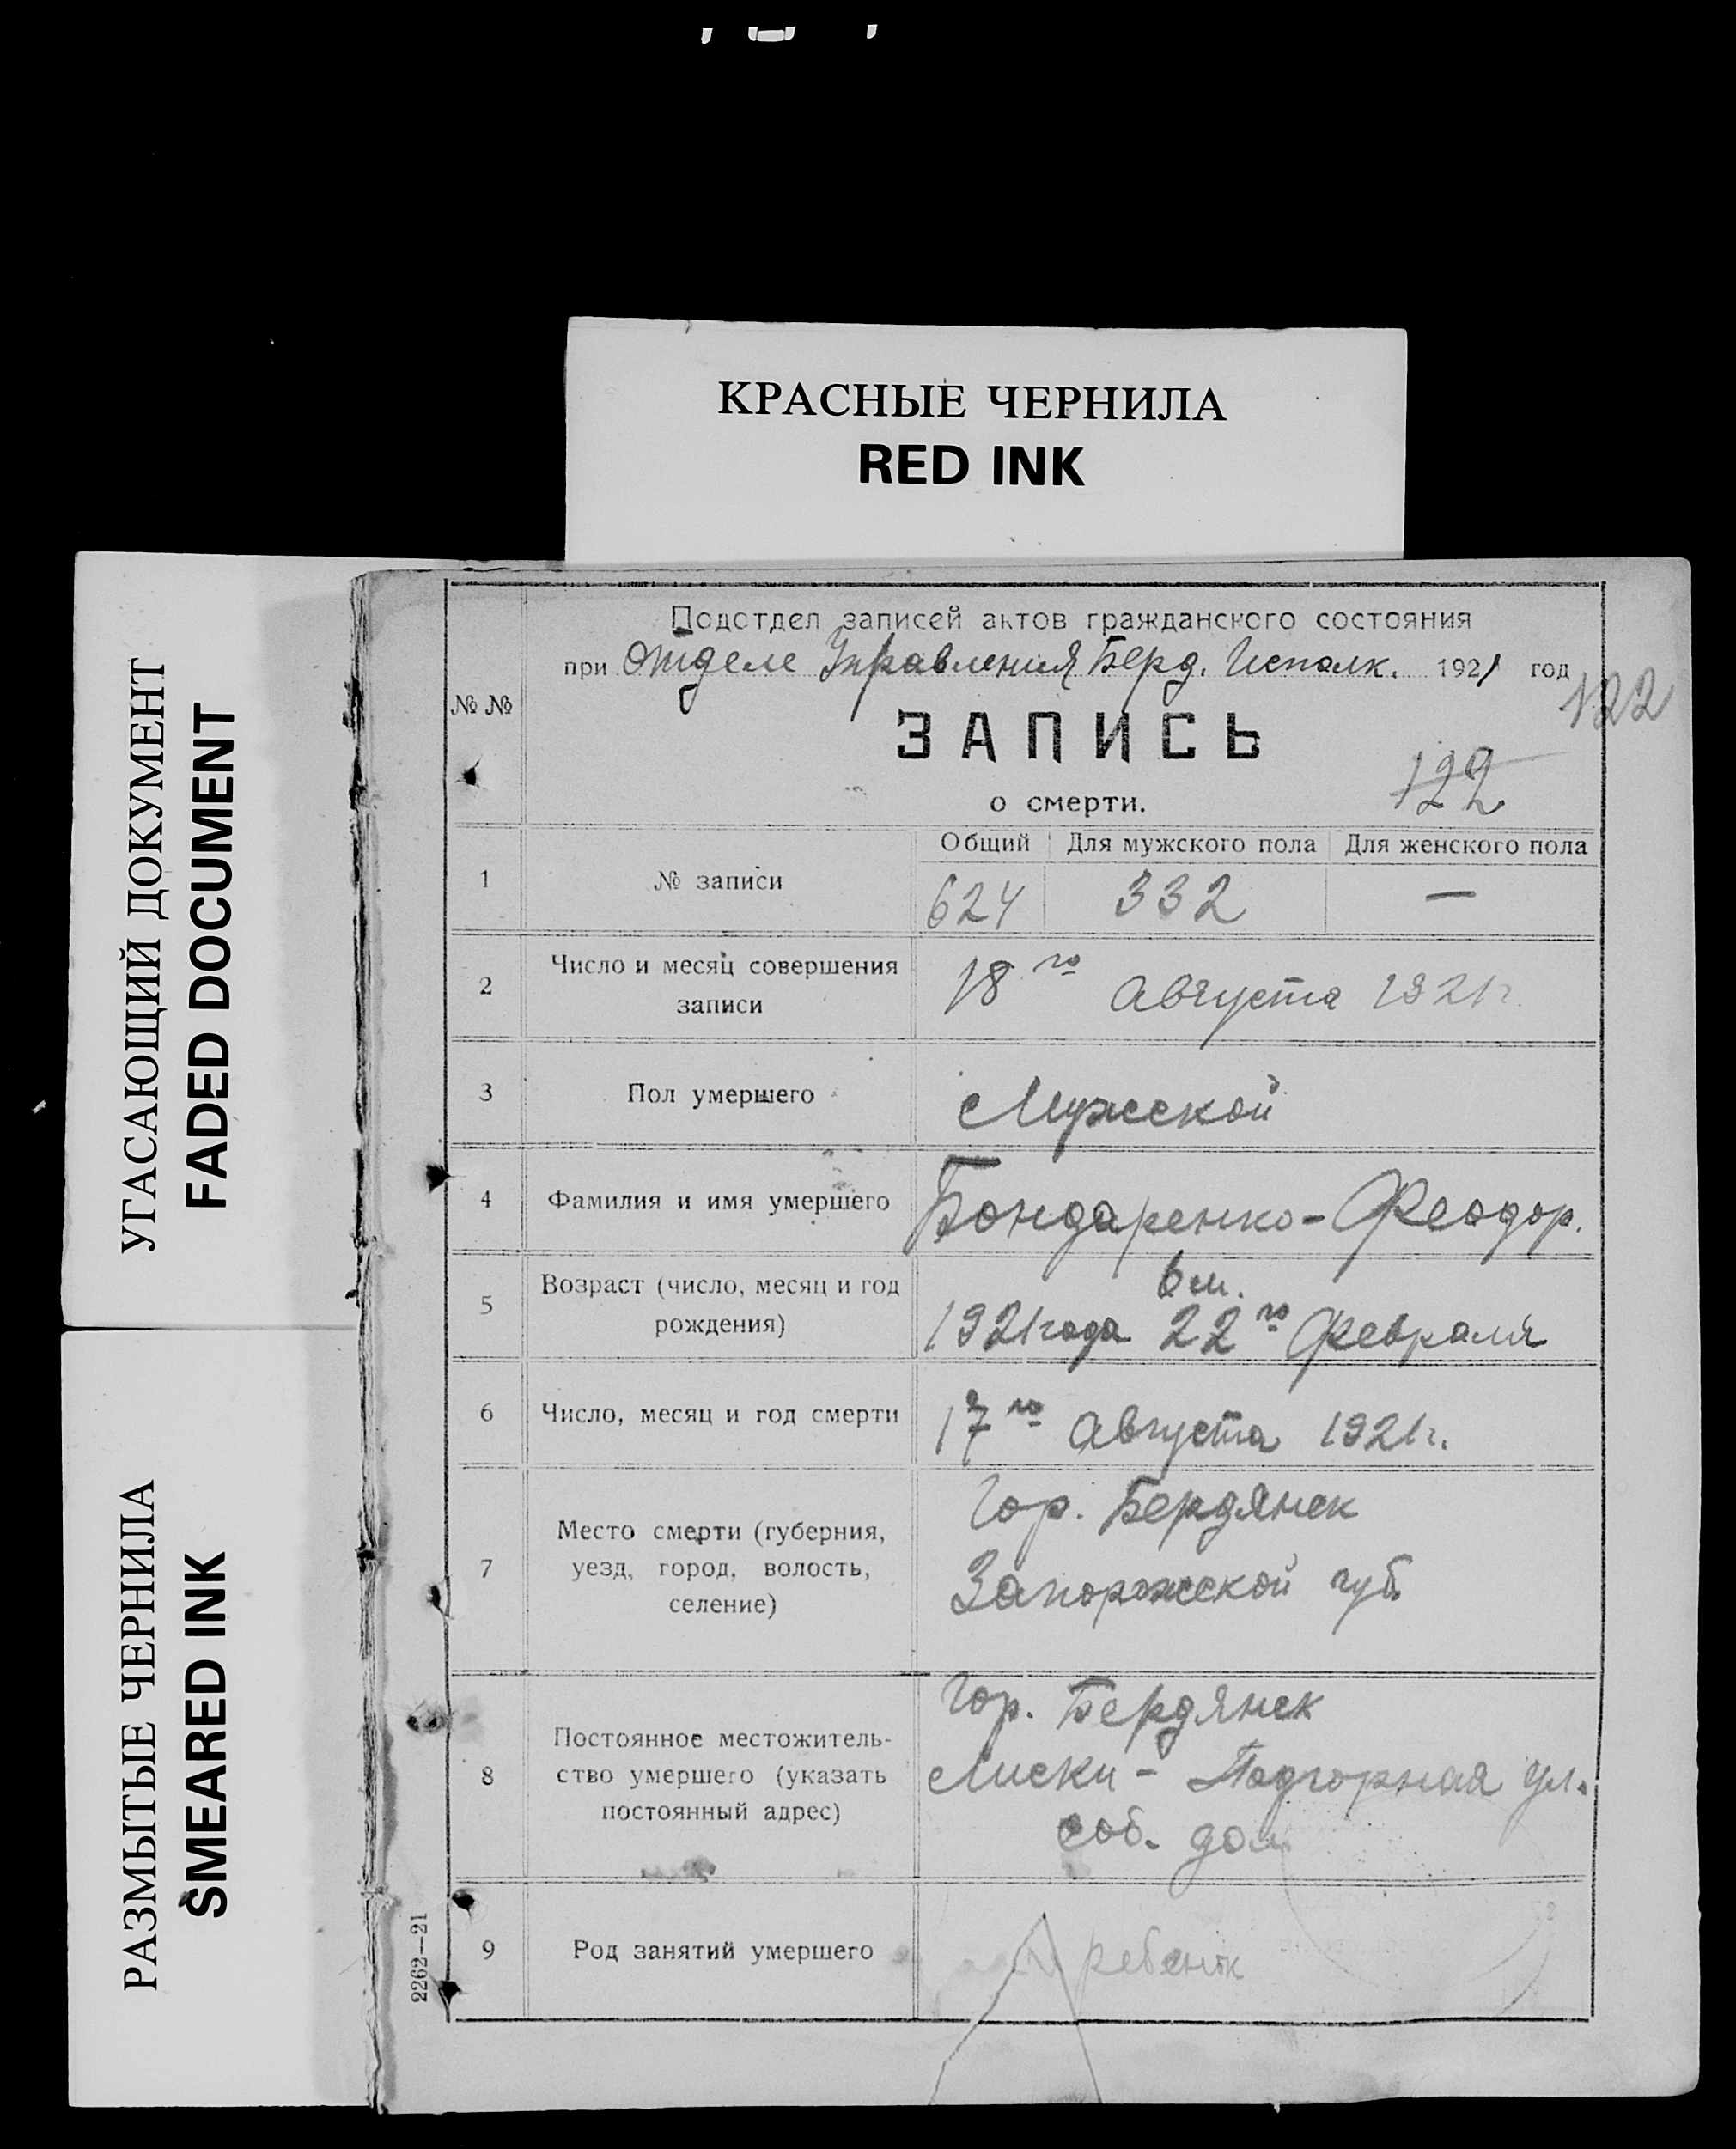 КРАСНЫЕ ЧЕРНИЛА
RED INK
УГАСАЮЩИЙ ДОКУМЕНТ
FADED DOCUMENT
РАЗМЫТЫЕ ЧЕРНИЛА
SMEARED INK
Подотдел записей актов гражданского состояния
при Отделе Управления Берд. Исполк. 1921 год
122
№ №
ЗАПИСЬ
122
о смерти.
Общий Для мужского пола Для женского пола
1 № записи 624 332 —
2 Число и месяц совершения
записи
18го Августа 1921г.
3 Пол умершего Мужской
4 Фамилия и имя умершего Бондаренко - Феодор.
5 Возраст (число, месяц и год
рождения)
6 м.
1921 года 22го Февраля
6 Число, месяц и год смерти 17го Августа 1921г.
7 Место смерти (губерния,
уезд, город, волость,
селение)
Гор. Бердянск
Запорожской губ.
8 Постоянное местожитель-
ство умершего (указать
постоянный адрес)
Гор. Бердянск
Лиски - Подгорная ул.
соб. дом
9 Род занятий умершего ребенок
2262—21